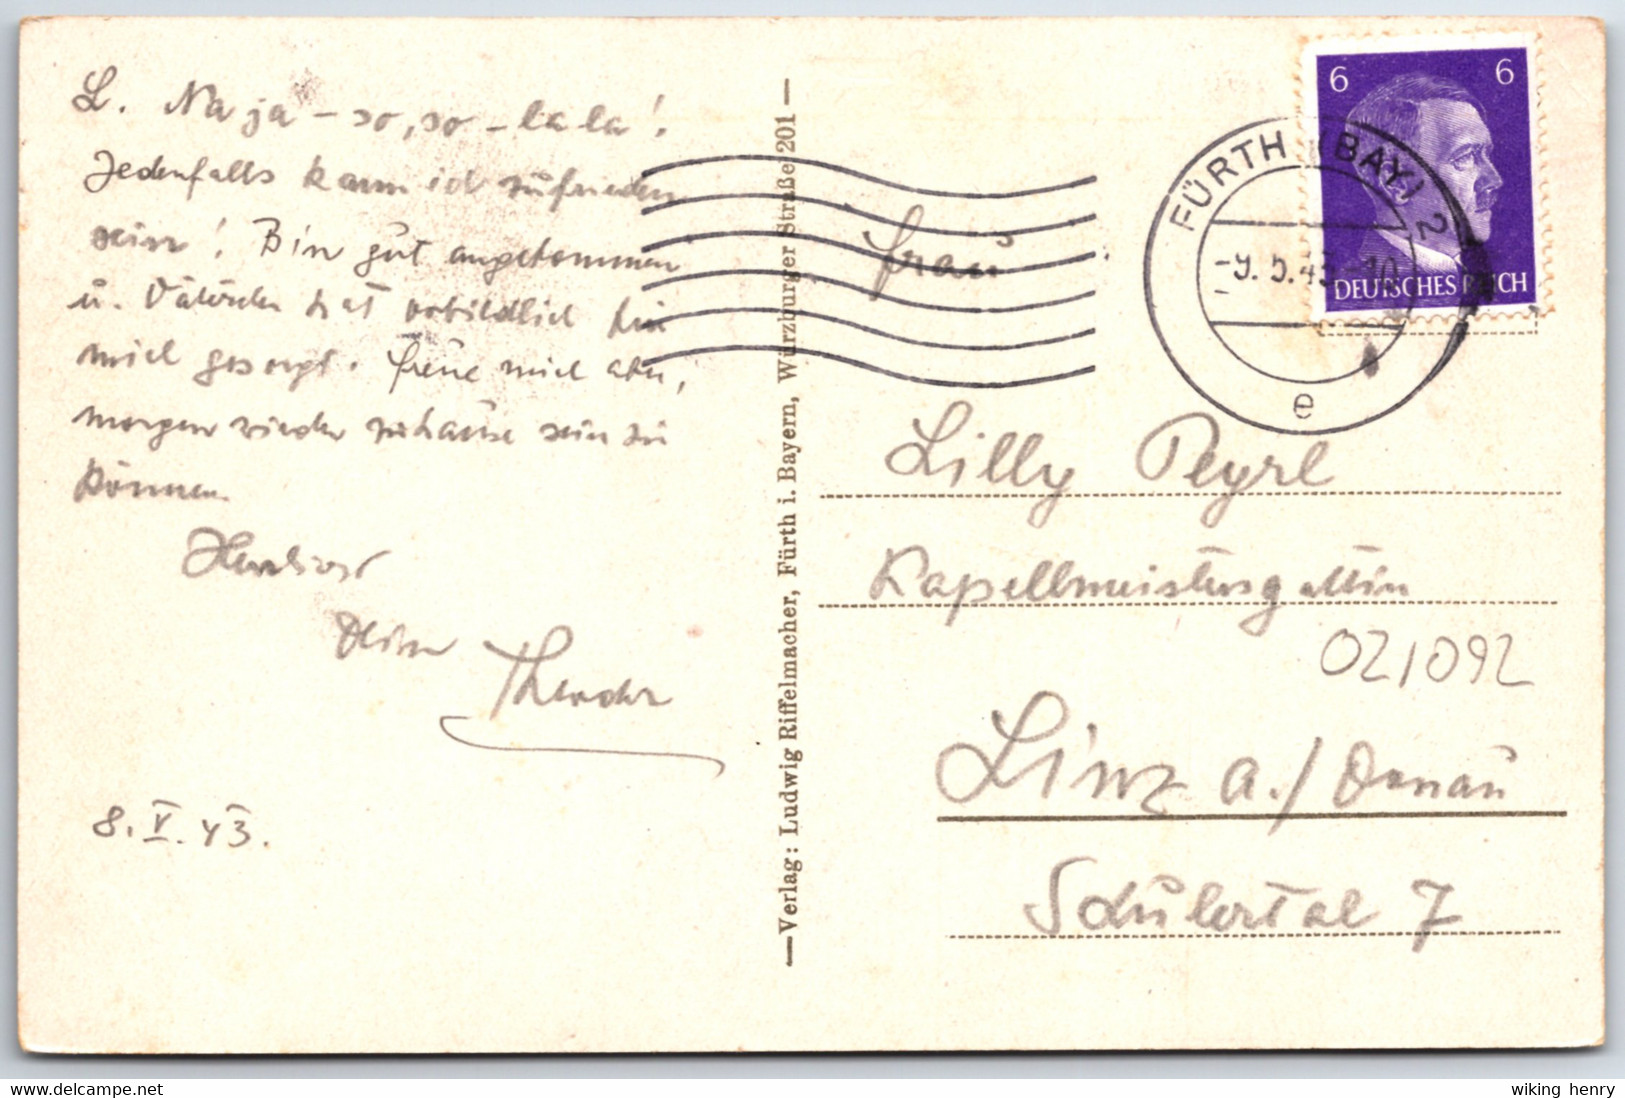 L. Na ja – so, so – la la!
Jedenfalls kann ich zufrieden
sein! Bin gut angekommen
u. Väterchen hat vorbildlich für
mich gesorgt. Freue mich aber,
morgen wieder zuhause sein zu
können.
Herzlichst
Dein
Theodor
8. V. 43.
— Verlag: Ludwig Riffelmacher, Fürth i. Bayern, Würzburger Straße 201 —
FÜRTH (BAY) 2
-9.5.43.-10
e
6 6
DEUTSCHES REICH
Frau
Lilly Peyrl
Kapellmeistersgattin
02/092
Linz a./Donau
Schülertal 7
delcampe.net
wiking henry